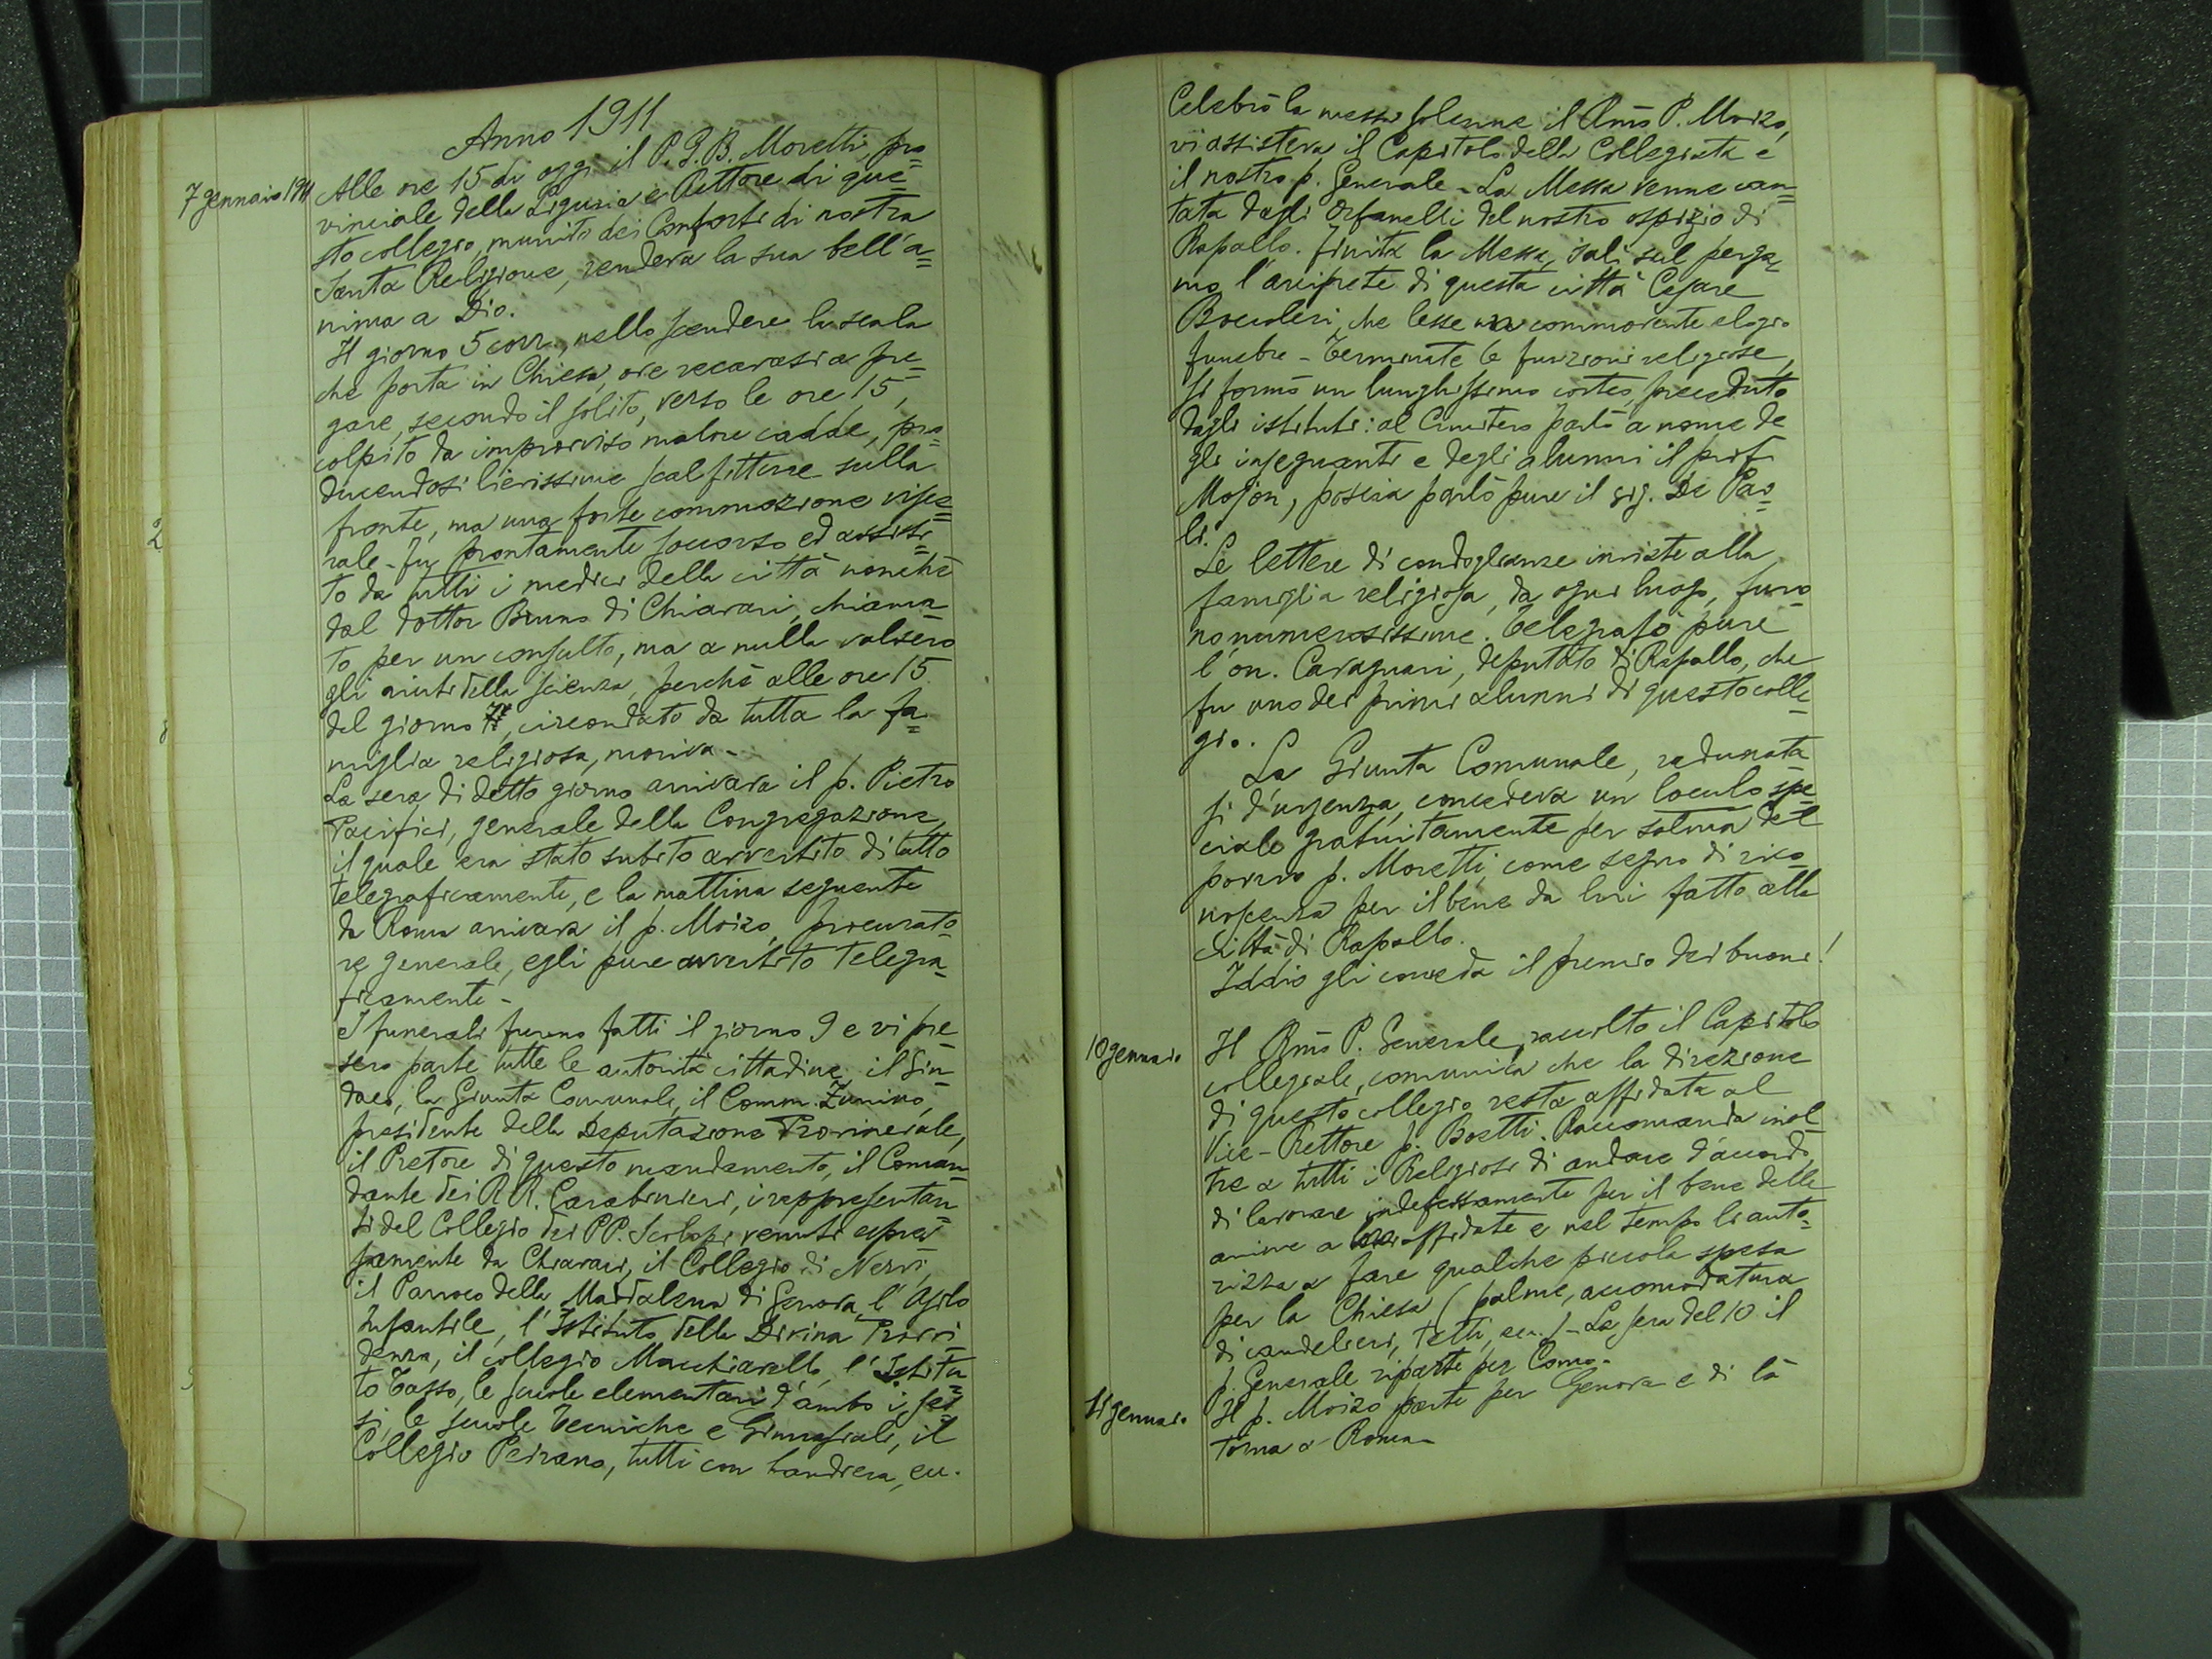 Anno 1911
7 gennaio 1911 Alle ore 15 di oggi il P. G. B. Moretti, pro=
vinciale della Liguria e Rettore di que=
sto collegio, munito dei Conforti di nostra
Santa Religione, rendeva la sua bell'a=
nima a Dio.
Il giorno 5 corr., nello scendere la scala
che porta in Chiesa, ove recavasi a pre=
gare, secondo il solito, verso le ore 15,
colpito da improvviso malore cadde, pro=
ducendosi lievissime scalfitture sulla
fronte, ma una forte commozione visce=
rale - fu prontamente soccorso ed assisti=
to da tutti i medici della città nonchè
dal dottor Bruno di Chiavari, chiama=
to per un consulto, ma a nulla valsero
gli aiuti della scienza, perchè alle ore 15
del giorno 7, circondato da tutta la fa=
miglia religiosa, moriva -
La sera di detto giorno arrivava il p. Pietro
Pacifici, generale della Congregazione,
il quale era stato subito avvertito di tutto
telegraficamente, e la mattina seguente
da Roma arrivava il p. Moizo, procurato=
re generale, egli pure avvertito telegra=
ficamente -
I funerali furono fatti il giorno 9 e vi pre=
sero parte tutte le autorità cittadine, il Sin=
daco, la Giunta Comunale, il Comm. Zunino,
presidente della Deputazione Provinciale,
il Pretore di questo mandamento, il Coman=
dante dei R R. Carabinieri, i rappresentan=
ti del Collegio dei PP. Scolopi venuti espres=
samente da Chiavari, il Collegio di Nervi,
il Parroco della Maddalena di Genova, l'Asilo
Infantile, l'Istituto della Divina Provvi=
denza, il collegio Macchiavello, l'Istitu=
to Tasso, le scuole elementari d'ambo i ses=
si, le scuole Tecniche e Ginnasiali, il
Collegio Peirano, tutti con bandiera, ecc.
Celebrò la messa solenne il Rmo P. Moizo,
vi assisteva il Capitolo della Collegiata e
il nostro p. Generale - La Messa venne can=
tata dagli Orfanelli del nostro ospizio di
Rapallo. Finita la Messa, salì sul perga=
mo l'arciprete di questa città Cesare
Boccoleri, che lesse un commovente elogio
funebre - Terminate le funzioni religiose,
si formò un lunghissimo corteo, preceduto
dagli istituti: al Cimitero parlò a nome de
gli insegnanti e degli alunni il prof.
Mojon, poscia parlò pure il sig. De Pao=
li.
Le lettere di condoglianze inviate alla
famiglia religiosa, da ogni luogo, furo=
no numerosissime. Telegrafò pure
l'on. Cavagnari, deputato di Rapallo, che
fu uno dei primi alunni di questo colle=
gio.
La Giunta Comunale, radunata
si d'urgenza, concedeva un loculo spe=
ciale gratuitamente per salma del
povero p. Moretti, come segno di rico=
noscenza per il bene da lui fatto alla
città di Rapallo.
Iddio gli conceda il premio dei buoni!
10 gennaio Il Rmo P. Generale, raccolto il Capitolo
collegiale, comunica che la direzione
di questo collegio resta affidata al
Vice-Rettore p. Boetti. Raccomanda inol=
tre a tutti i Religiosi di andare d'accordo,
di lavorare indefessamente per il bene delle
anime a loro affidate e nel tempo li auto=
rizza a fare qualche piccola spesa
per la Chiesa (palme, accomodatura
di candelieri, tetti, ecc.) - La sera del 10 il
p. Generale riparte per Como.
11 gennaio Il p. Moizo parte per Genova e di là
torna a Roma -